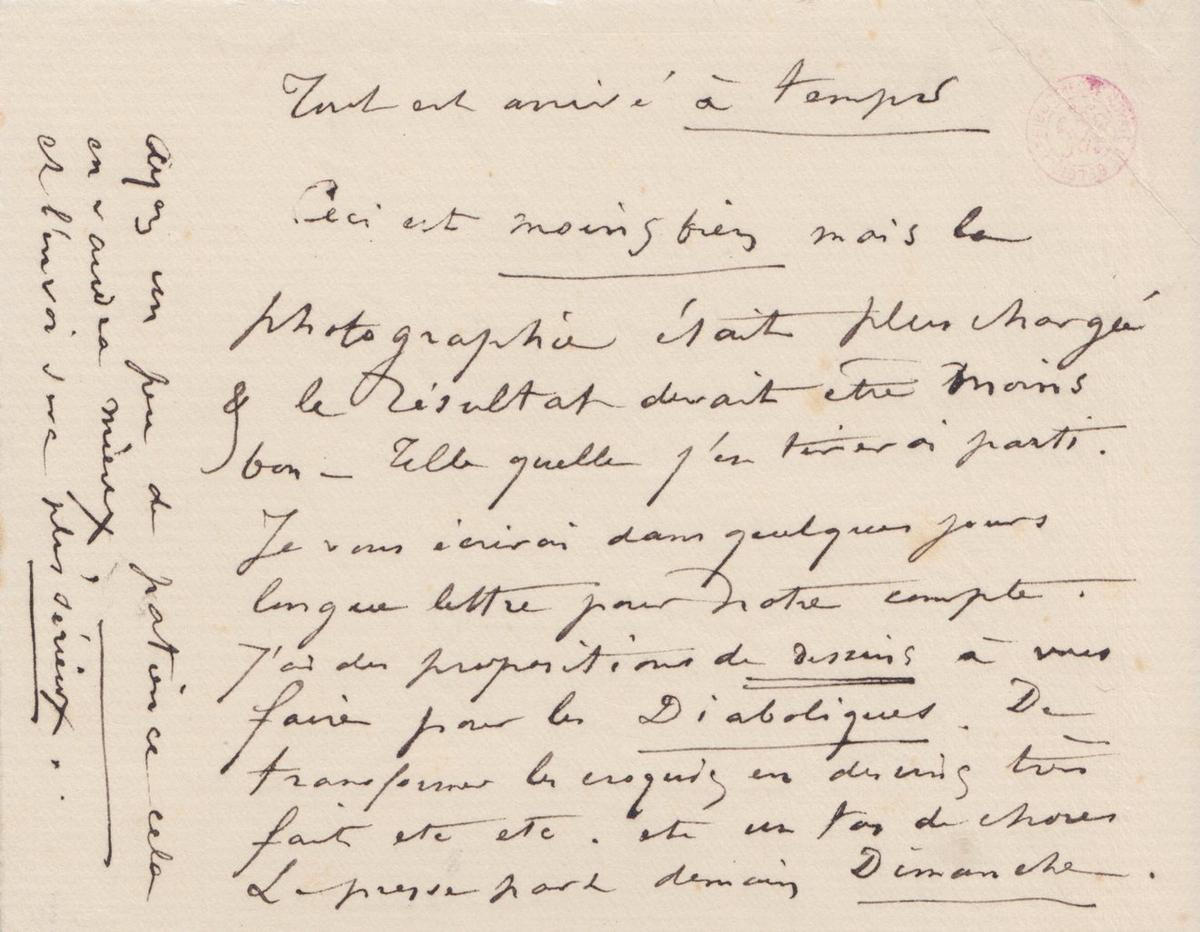 Tout est arrivé à temps
Ceci est moins bien mais la
photographie était plus chargée
& le Résultat devait etre moins
bon — Telle quelle j'en tirerai parti.
Je vous écrirai dans quelques jours
longue lettre pour notre compte.
J'ai des propositions de dessins à vous
faire pour les Diaboliques. De
transformer les croquis en dessins très
fait etc etc. etc un tas de choses
La presse part demain Dimanche.
Ayez un peu de patience cela
en vaudra mieux
et l'envoi sera plus sérieux.